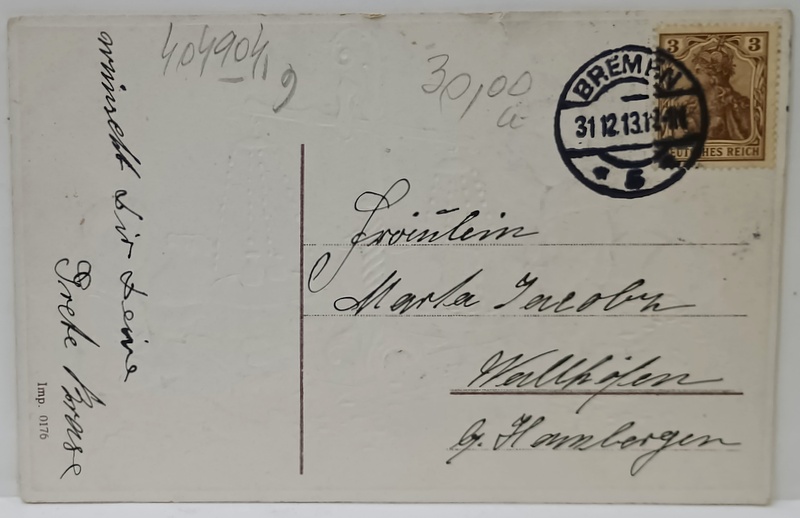 404904,9
30,00
3 3
DEUTSCHES REICH
BREMEN
31 12.13.1
5
Fräulein
Marta Jacobs
Wallhöfen
b. Hambergen
wünscht Dir Deine
Grete Brase
Imp. 0176